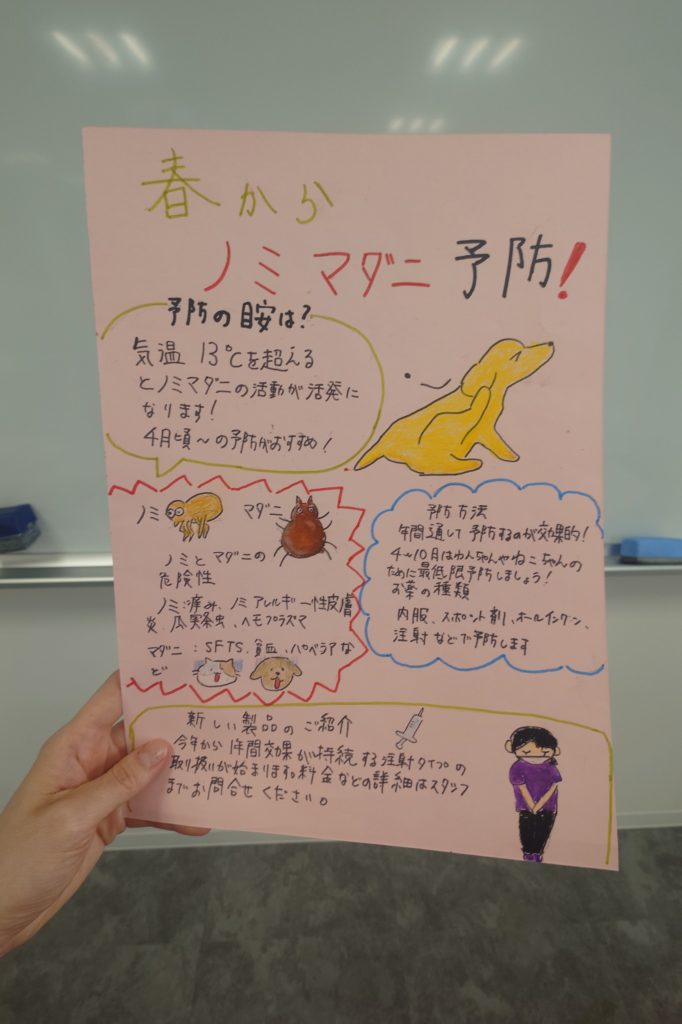 春から
ノミ マダニ 予防!
予防の目安は?
気温 13℃を超える
とノミマダニの活動が活発に
なります!
4月頃～の予防がおすすめ!
ノミ マダニ
ノミと マダニの
危険性
ノミ:痒み、ノミアレルギー性皮膚
炎、瓜実条虫、ヘモプラズマ
マダニ:SFTS、貧血、バベシアな
ど
予防方法
年間通して予防するのが効果的!
4～10月はわんちゃんやねこちゃんの
ために最低限予防しましょう!
お薬の種類
内服、スポット剤、オールインワン、
注射などで予防します
新しい製品のご紹介
今年から1年間効果が持続する注射タイプの
取り扱いが始まります。料金などの詳細はスタッフ
までお問合せください。